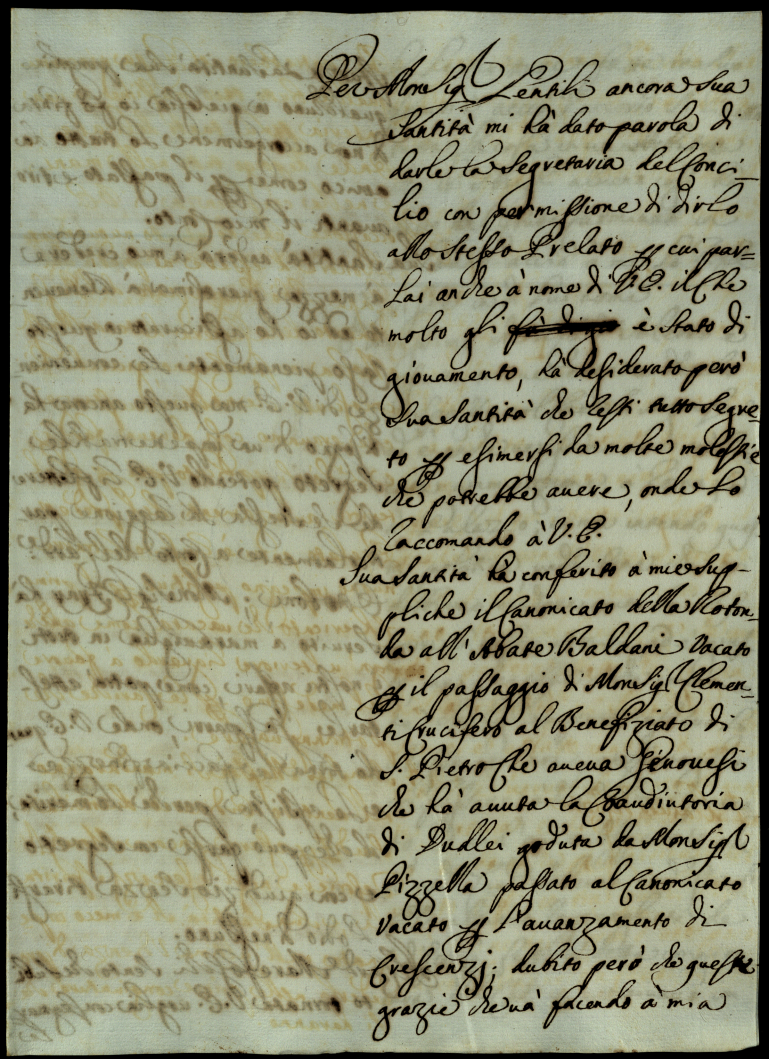 Per Monsig.r Lentili ancora Sua
Santità mi hà dato parola di
darle la Segretaria del Conci-
lio con permissione di dirlo
allo stesso Prelato p cui par=
lai anche à nome di V.E. il che
molto gli è stato di
giouamento, hà desiderato però
Sua Santità che resti tutto segre-
to p esimersi da molte molestie
che potrebbe auere, onde lo
raccomando à V.E.
Sua Santità hà conferito à mie sup-
pliche il Canonicato della Roton-
da all'Abate Baldani vacato
p il passaggio di Monsig.r Clemen-
ti Crucifero al Benefiziato di
S. Pietro che aueua Genouesi
che hà auuta la Coadiutoria
di Dudlei goduta da Monsig.r
Pizzella passato al Canonicato
vacato p l'auanzamento di
Crescenzj: dubito però che queste
grazie che uà facendo à mia